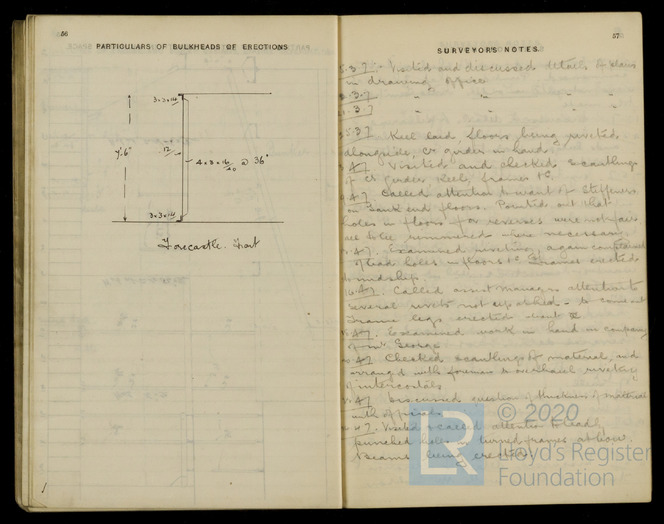 56
PARTICULARS OF BULKHEADS OF ERECTIONS
3×3×
7'-6"
.12
4 × 3 × 16/40 @ 36"
3×3×
Forecastle Front
57
SURVEYOR'S NOTES.
5.3.7. Visited and discussed details & plans
in drawing office
" " "
" " "
Keel laid floors being riveted
alongside, cr girder in hand,
Visited and checked scantlings
of cr girder keel, frames &c.
Called attention to want of stiffeners
on tank end floors. Pointed out that
holes in floors for reverses were not fair
to be rimmered where necessary.
Examined riveting, again complained
of bad holes in floors &c Frames erected
midship.
Called asst managers attention to
several rivets not up
frame legs erected
Examined work in hand in company
of Mr George
Checked scantlings of material, and
arranged with foreman to overhaul riveting
of intercostals
Discussed question of thickness of material
with officials
Visited & called attention to badly
punched holes in turned frames at bow.
Beams being erected
© 2020
LR
Lloyd's Register
Foundation